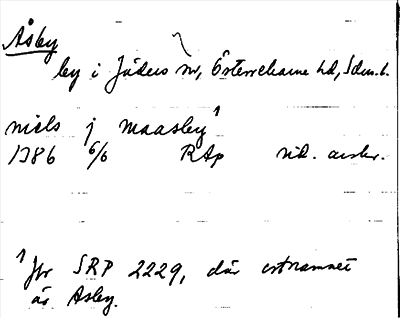 Åsby
by i Jäders sn, Österrekarne hd, Sdm.l.
niels j maasby¹
1386 6/6 RAp vid. avskr.
¹ Jfr SRP 2229, där ortnamnet
är Asby.